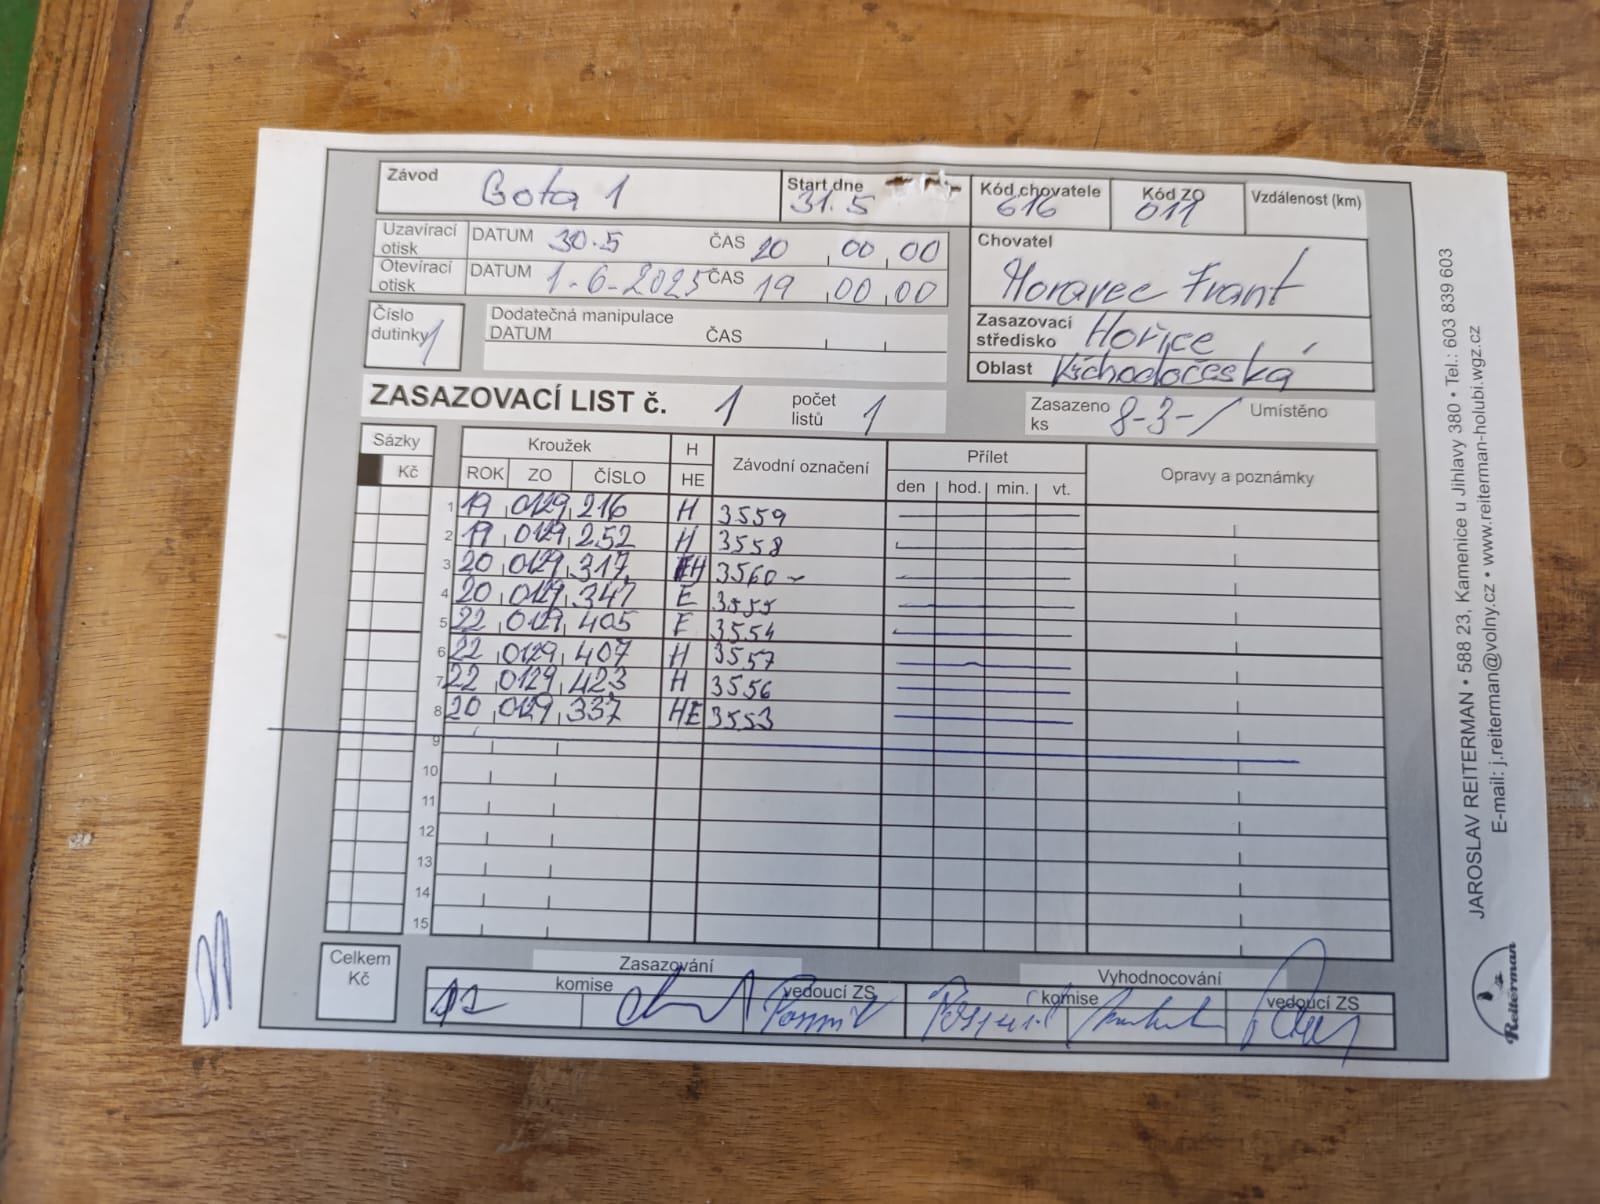 Závod Gota 1 Start dne 31.5 Kód chovatele 616 Kód ZO 011 Vzdálenost (km)
Uzavírací otisk DATUM 30.5 ČAS 20 00 00
Otevírací otisk DATUM 1-6-2025 ČAS 19 00 00
Chovatel
Moravec Frant
Číslo dutinky 1
Dodatečná manipulace
DATUM ČAS
Zasazovací středisko Hořice
Oblast Východočeská
ZASAZOVACÍ LIST č. 1 počet listů 1
Zasazeno ks 8-3-1 Umístěno
Sázky Kroužek H Závodní označení Přílet Opravy a poznámky
Kč ROK ZO ČÍSLO HE den hod. min. vt.
1 19 0129 216 H 3559
2 19 0129 252 H 3558
3 20 0129 317 H 3560
4 20 0129 347 E 3555
5 22 0129 405 E 3554
6 22 0129 407 H 3557
7 22 0129 423 H 3556
8 20 0129 337 HE 3553
9
10
11
12
13
14
15
Celkem Kč
Zasazování Vyhodnocování
komise vedoucí ZS komise vedoucí ZS
JAROSLAV REITERMAN • 588 23, Kamenice u Jihlavy 380 • Tel.: 603 839 603
E-mail: j.reiterman@volny.cz • www.reiterman-holubi.wgz.cz
Reiterman